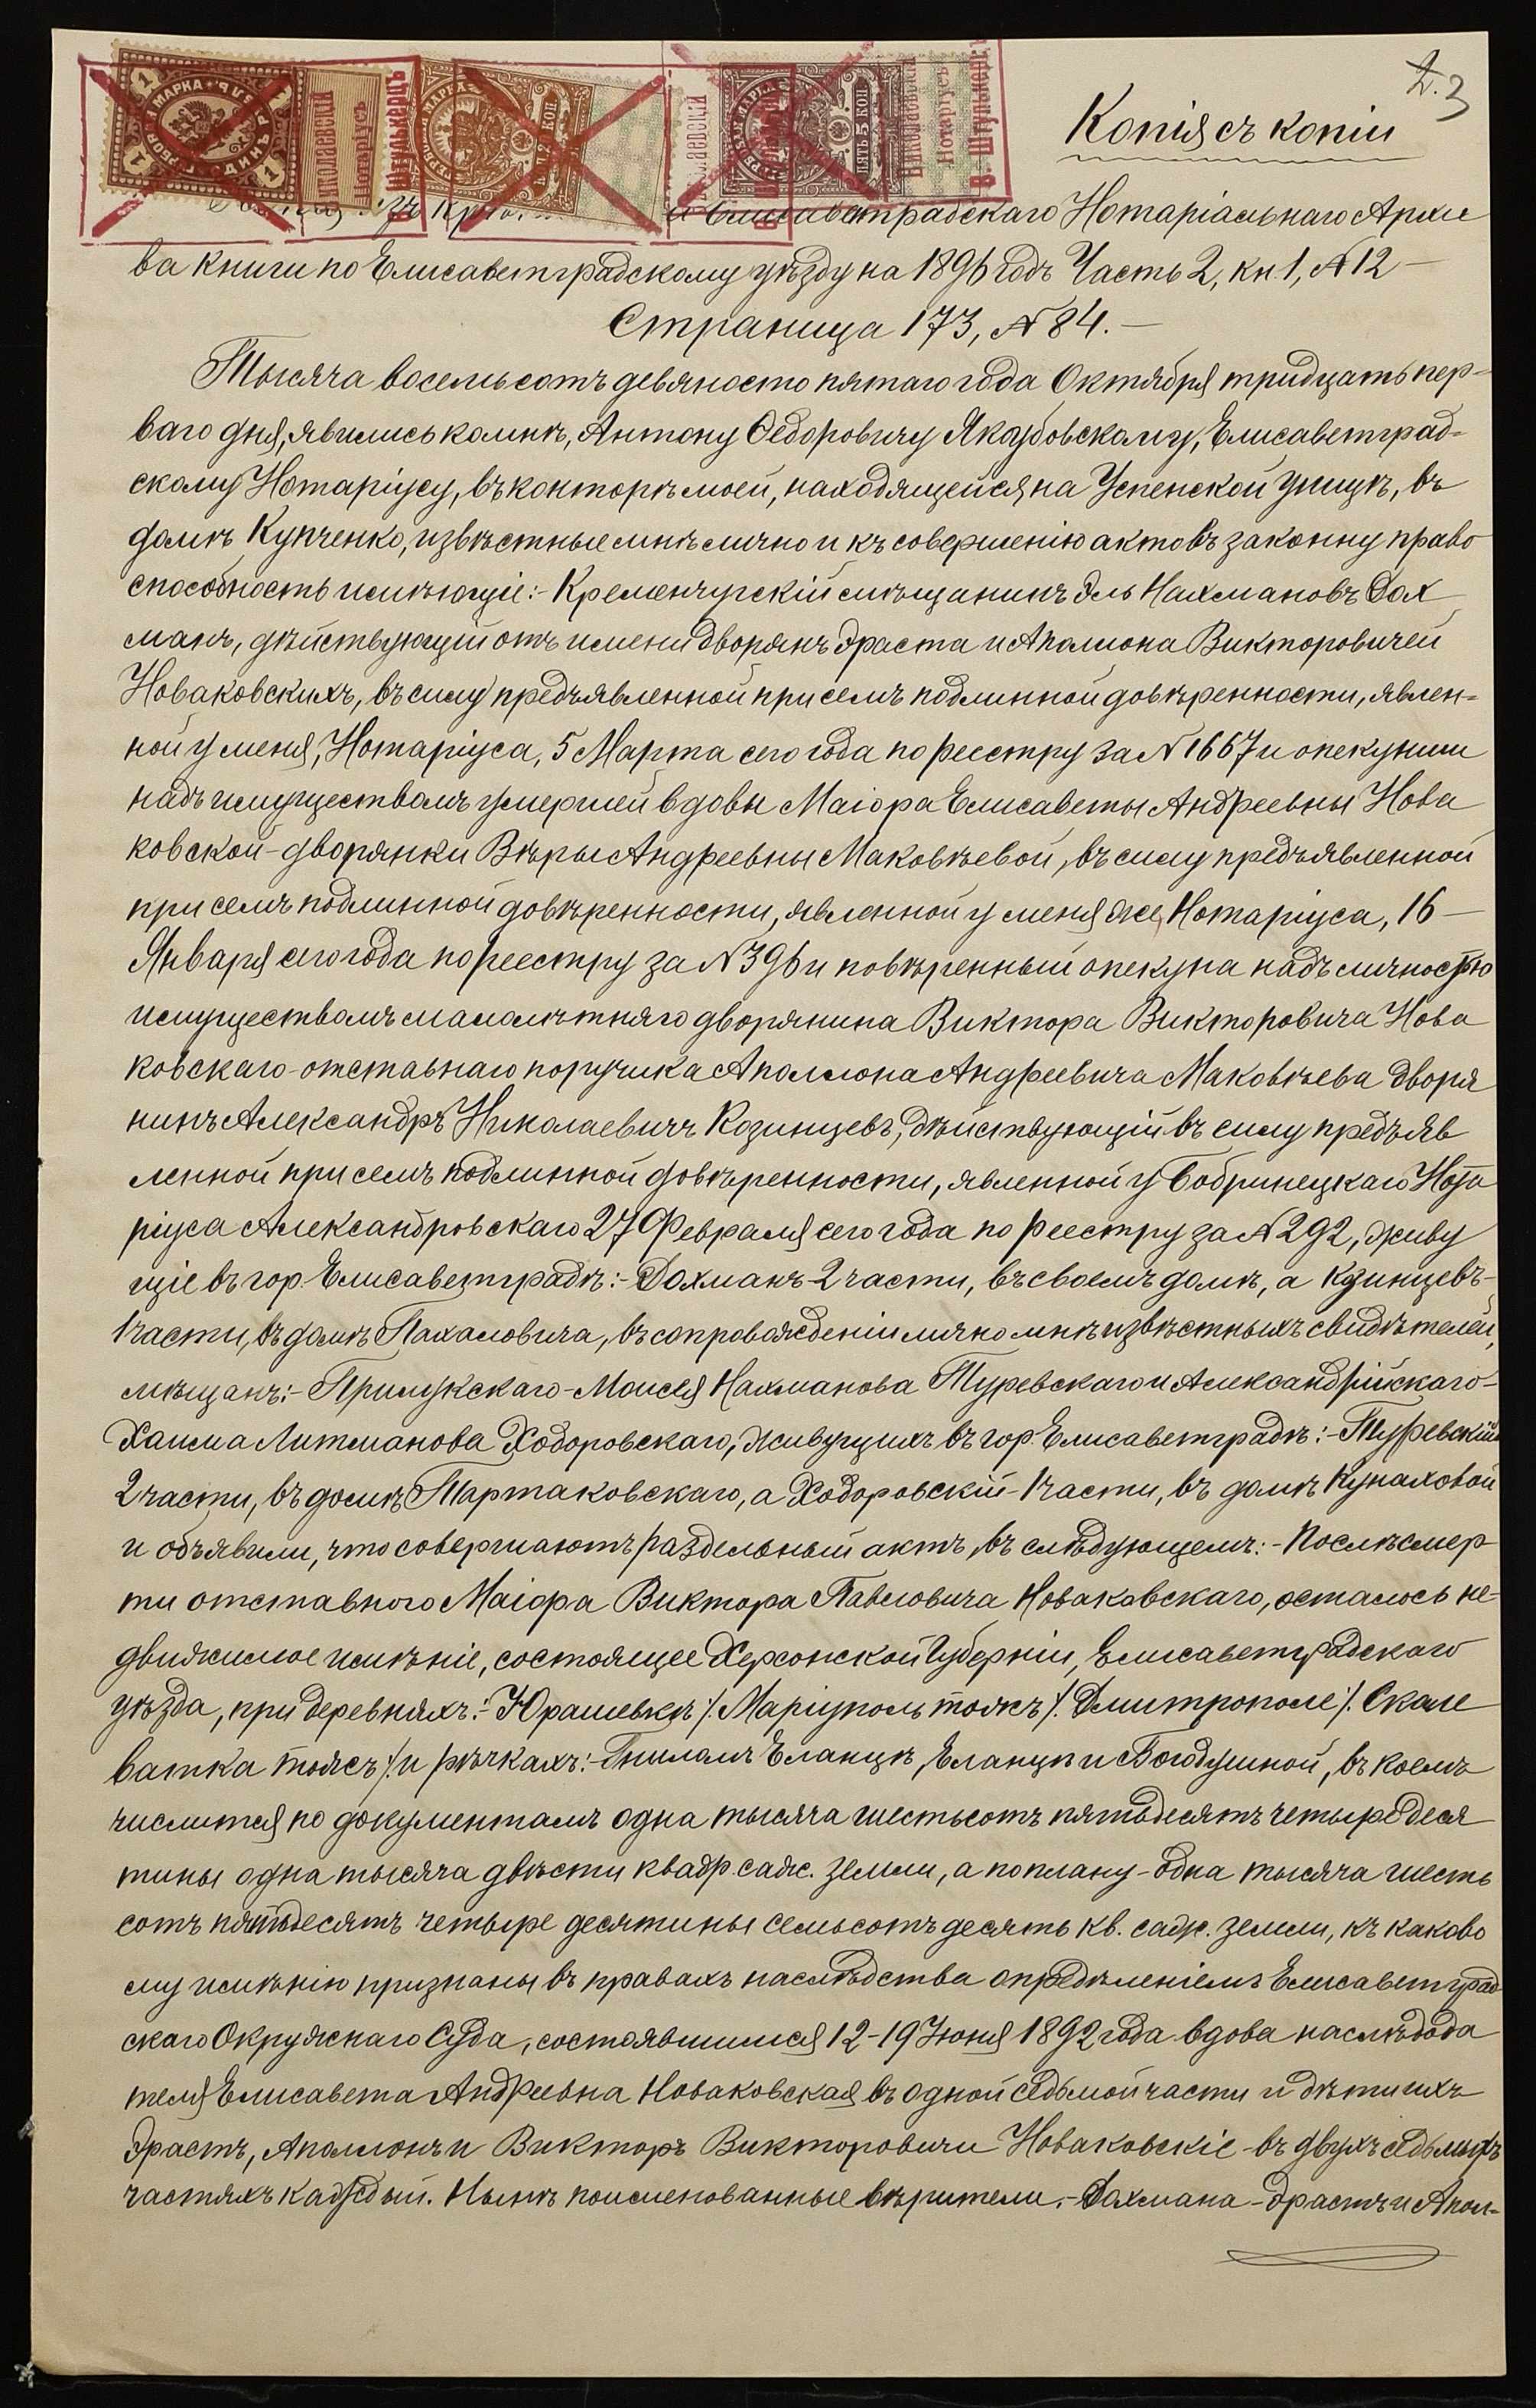 2. 3
Копія съ копіи
Елисаветградскаго Нотаріальнаго Архи
ва книги по Елисаветградскому уѣзду на 1896 годъ Часть 2, кн. 1, № 12 —
Страница 173, № 84. —
Тысяча восемьсотъ девяносто пятаго года Октября тридцать пер-
ваго дня, явились ко мнѣ, Антону Федоровичу Якубовскому, Елисаветград-
скому Нотаріусу, въ конторѣ моей, находящейся на Успенской улицѣ, въ
домѣ Купченко, извѣстные мнѣ лично и къ совершенію актовъ законну право
способность имѣющіе:- Кременчугскій мѣщанинъ Эль Нахмановъ Дох
манъ, дѣйствующій отъ имени дворянъ Эраста и Аполлона Викторовичей
Новаковскихъ, въ силу предъявленной при семъ подлинной довѣренности, явлен-
ной у меня, Нотаріуса, 5 Марта сего года по реестру за № 1667 и опекунши
надъ имуществомъ умершей вдовы Маіора Елисаветы Андреевны Нова
ковской - дворянки Вѣры Андреевны Маковѣевой, въ силу предъявленной
при семъ подлинной довѣренности, явленной у меня же, Нотаріуса, 16 —
Января сего года по реестру за № 396 и повѣренный опекуна надъ личностью
имуществомъ малолѣтняго дворянина Виктора Викторовича Нова
ковскаго - отставнаго поручика Аполлона Андреевича Маковѣева дворя
нинъ Александръ Николаевичъ Козинцевъ, дѣйствующій въ силу предъяв
ленной при семъ подлинной довѣренности, явленной у Бобринецкаго Нота
ріуса Александровскаго 27 Февраля сего года по реестру за № 292, живу
щіе въ гор. Елисаветградѣ:- Дохманъ - 2 части, въ своемъ домѣ, а Кзинцевъ -
1 части, въ домѣ Пахаловича, въ сопровожденіи лично мнѣ извѣстныхъ свидѣтелей,
мѣщанъ:- Прилукскаго - Моисея Нахманова Туревскаго и Александрійскаго -
Хаима Литманова Ходоровскаго, живущихъ въ гор. Елисаветградѣ:- Туревскій
2 части, въ домѣ Партаковскаго, а Ходоровскій - 1 части, въ домѣ Куналовой
и объявили, что совершаютъ раздельный актъ, въ слѣдующемъ:- Послѣ смер
ти отставного Маіора Виктора Павловича Новаковскаго, осталось не-
движимое имѣніе, состоящее Херсонской Губерніи, Елисаветградскаго
уѣзда, при деревняхъ:- Юрашевкѣ /. Маріуполь тожъ /. Дмитрополе /. Скале
ватка тожъ /. и рѣчкахъ:- Гниломъ Еланцѣ, Еланцѣ и Богодушной, въ коемъ
числится по документамъ одна тысяча шестьсотъ пятьдесятъ четыре деся
тины одна тысяча двѣсти квадр. саж. земли, а по плану - одна тысяча шесть
сотъ пятьдесятъ четыре десятины семьсотъ десять кв. саж. земли, къ каково
му имѣнію признаны въ правахъ наслѣдства опредѣленіемъ Елисаветград
скаго Окружнаго Суда, состоявшимся 12-19 Іюня 1892 года вдова наслѣдода
теля Елисавета Андреевна Новаковская въ одной седьмой части и дѣти ихъ
Эрастъ, Аполлонъ и Викторъ Викторовичи Новаковскіе - въ двухъ седьмыхъ
частяхъ каждый. Нынѣ поименованные вѣрители:- Дохмана - Эрастъ и Апол-